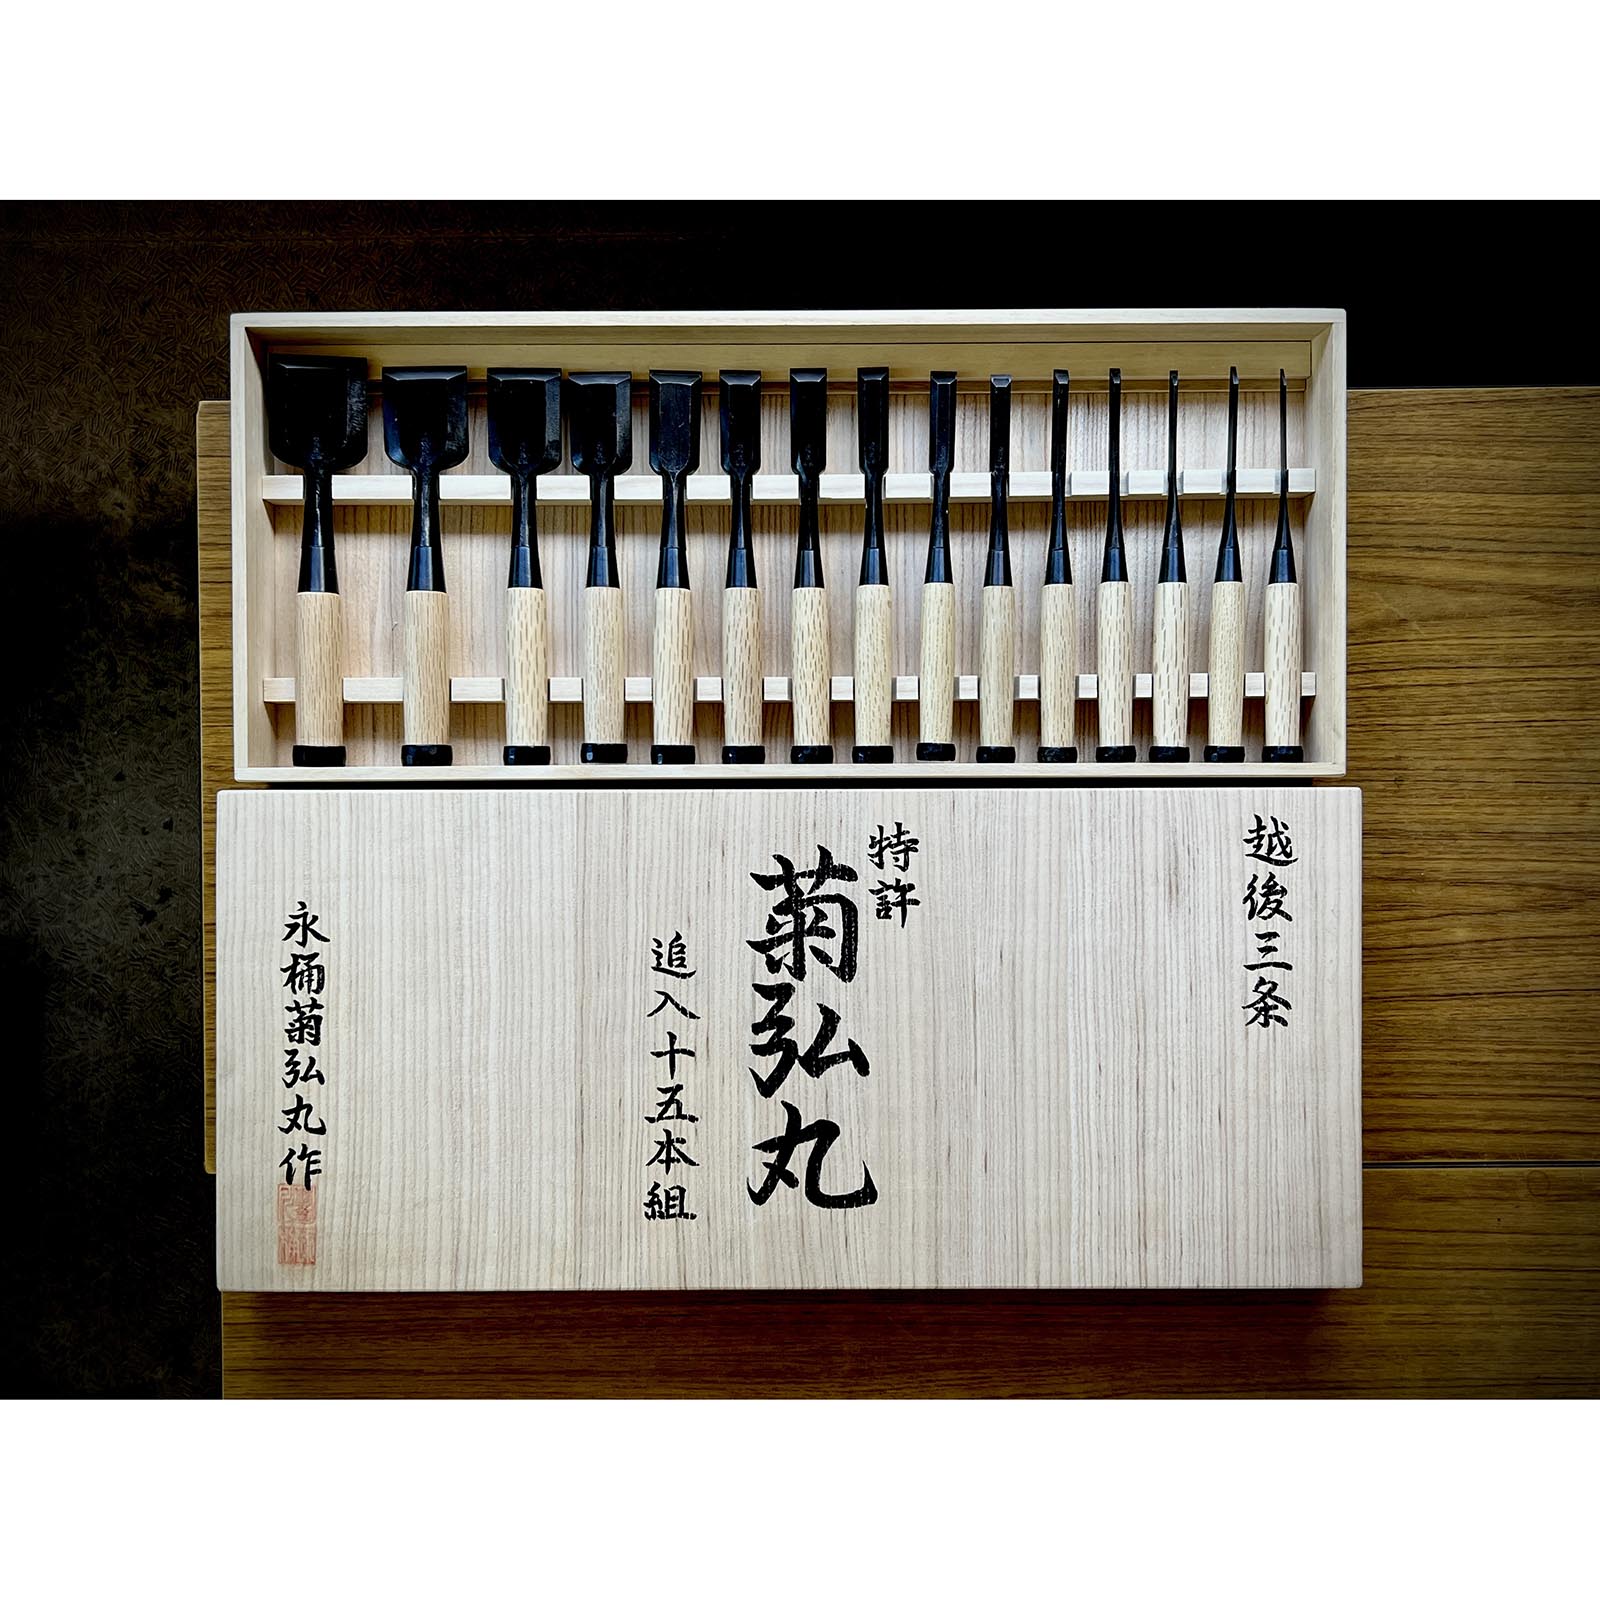 越後三条
特許
菊弘丸
追入十五本組
永桶菊弘丸作